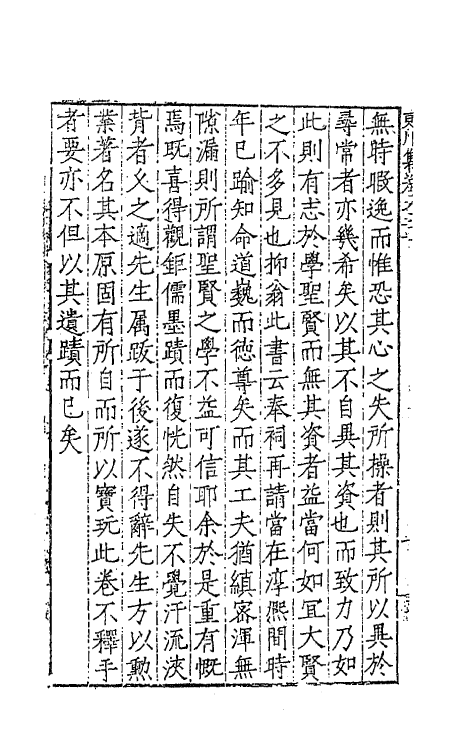 無時暇逸而惟恐其心之失所操者則其所以異於
尋常者亦幾希矣以其不自異其資也而致力乃如
此則有志於學聖賢而無其資者益當何如宜大賢
之不多見也抑翁此書云奉祠再請當在淳熙間時
年已踰知命道巍而德尊矣而其工夫猶縝密渾無
隙漏則所謂聖賢之學不益可信耶余於是重有慨
焉既喜得觀鉅儒墨蹟而復恍然自失不覺汗流浹
背者久之適先生属跋于後遂不得辭先生方以勲
業著名其本原固有所自而所以寶玩此卷不釋乎
者要亦不但以其遺蹟而已矣